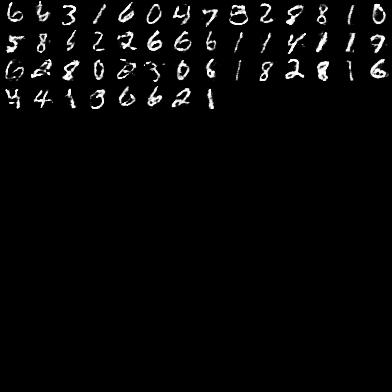 6 6 3 1 6 0 4 7 8 2 8 8 1 0
5 8 2 2 6 6 6 1 1 4 1 1 9
6 2 8 0 2 3 0 6 1 8 2 8 1 6
4 4 1 3 6 6 2 1